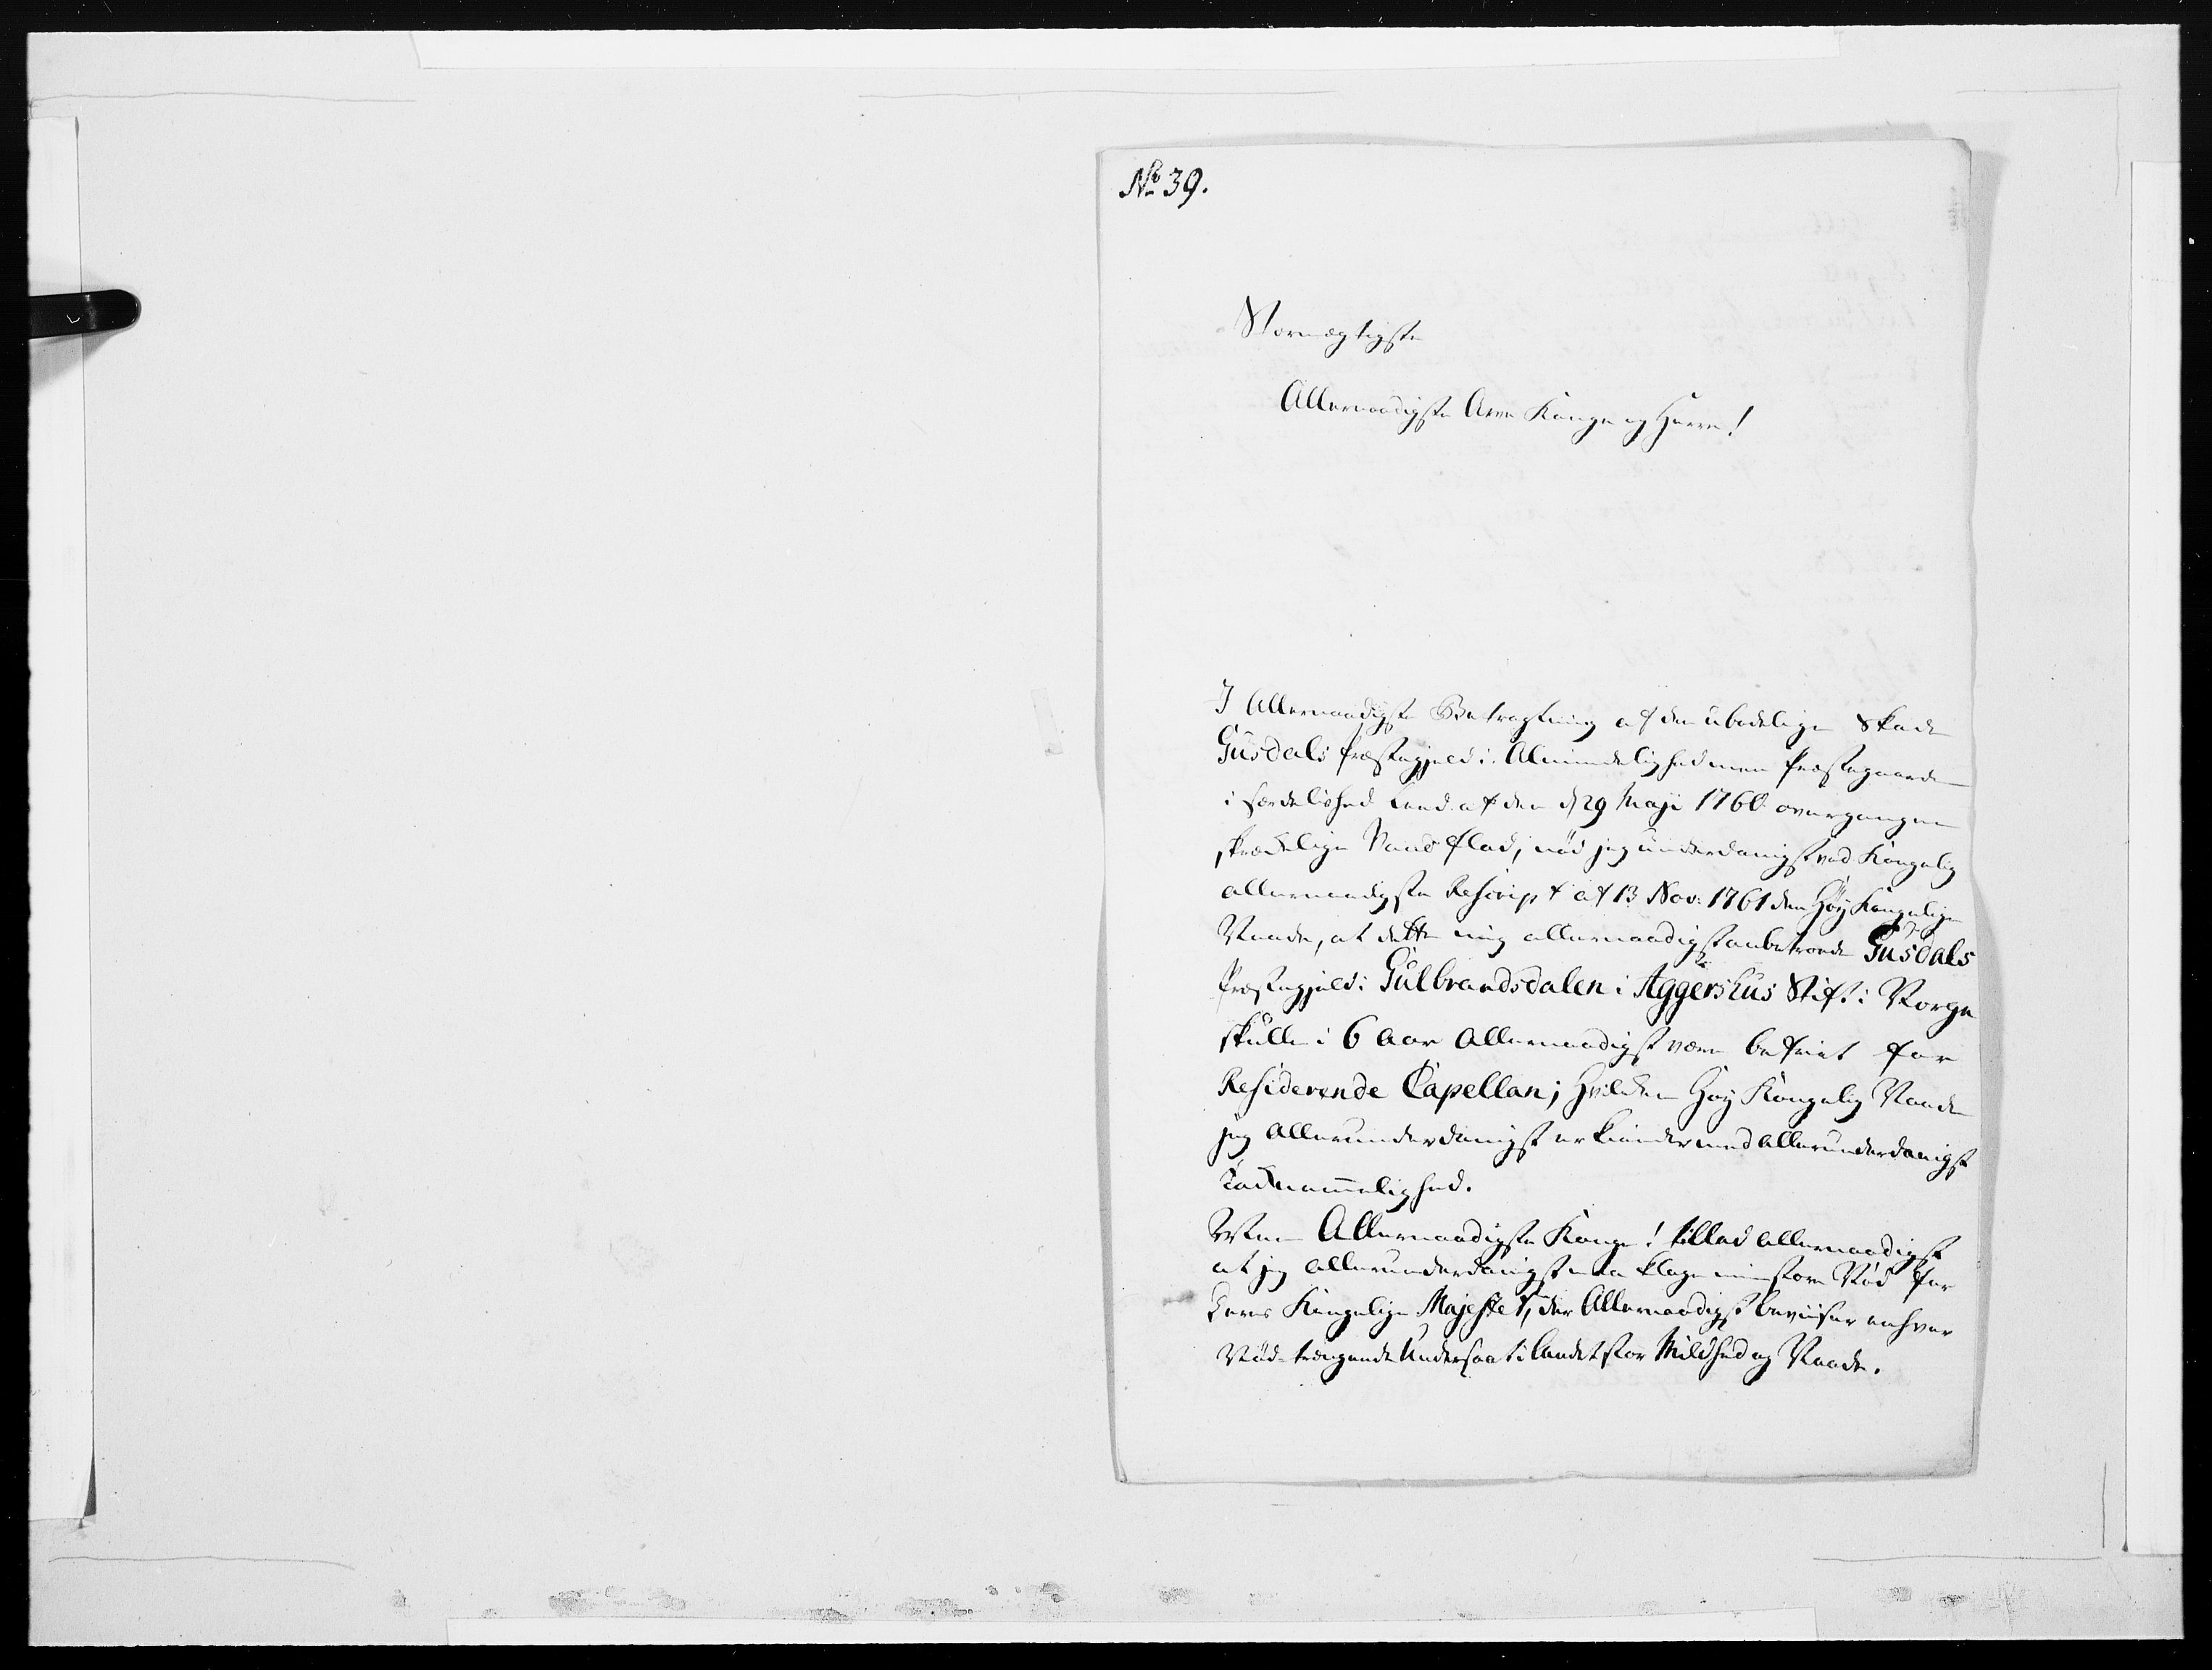 No 39.
Stormægtigste
Allernaadigste Arve Konge og Herre!
I Allernaadigste Betragtning af den ubodelige Skade
Gusdals Præstegjeld i Almindelighed men Præstegaarden
i særdelished leed af den d 29 Maji 1760 overgangne
skrækelige Vand flod, nød jeg underdanigst ved Kongelig
allernaadigste Rescript af 13 Nov: 1761 den Høy Kongelige
Naade, at dette mig allernaadigst anbetroede Gusdals
Præstegjeld i Gulbrandsdalen i Aggershus Stift i Norge
skulle i 6 Aar Allernaadigst være befriet for
Residerende Capellan; hvilken Høy Kongelig Naade
jeg Allerunderdanigst erkiender med allerunderdanigst
Taknemmelighed.
Men Allernaadigste Konge! tillad allernaadigst
at jeg allerunderdanigst maa klage min store Nød for
Deres Kongelige Majestet, der Allernaadigst beviiser enhver
Nød-trængende Undersaat i Landet stor Mildhed og Naade.